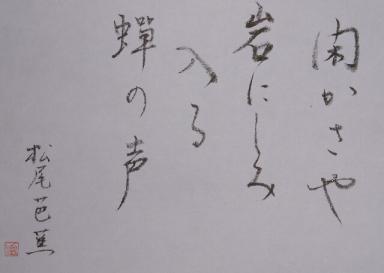 閑かさや
岩にしみ
入る
蝉の声
松尾芭蕉